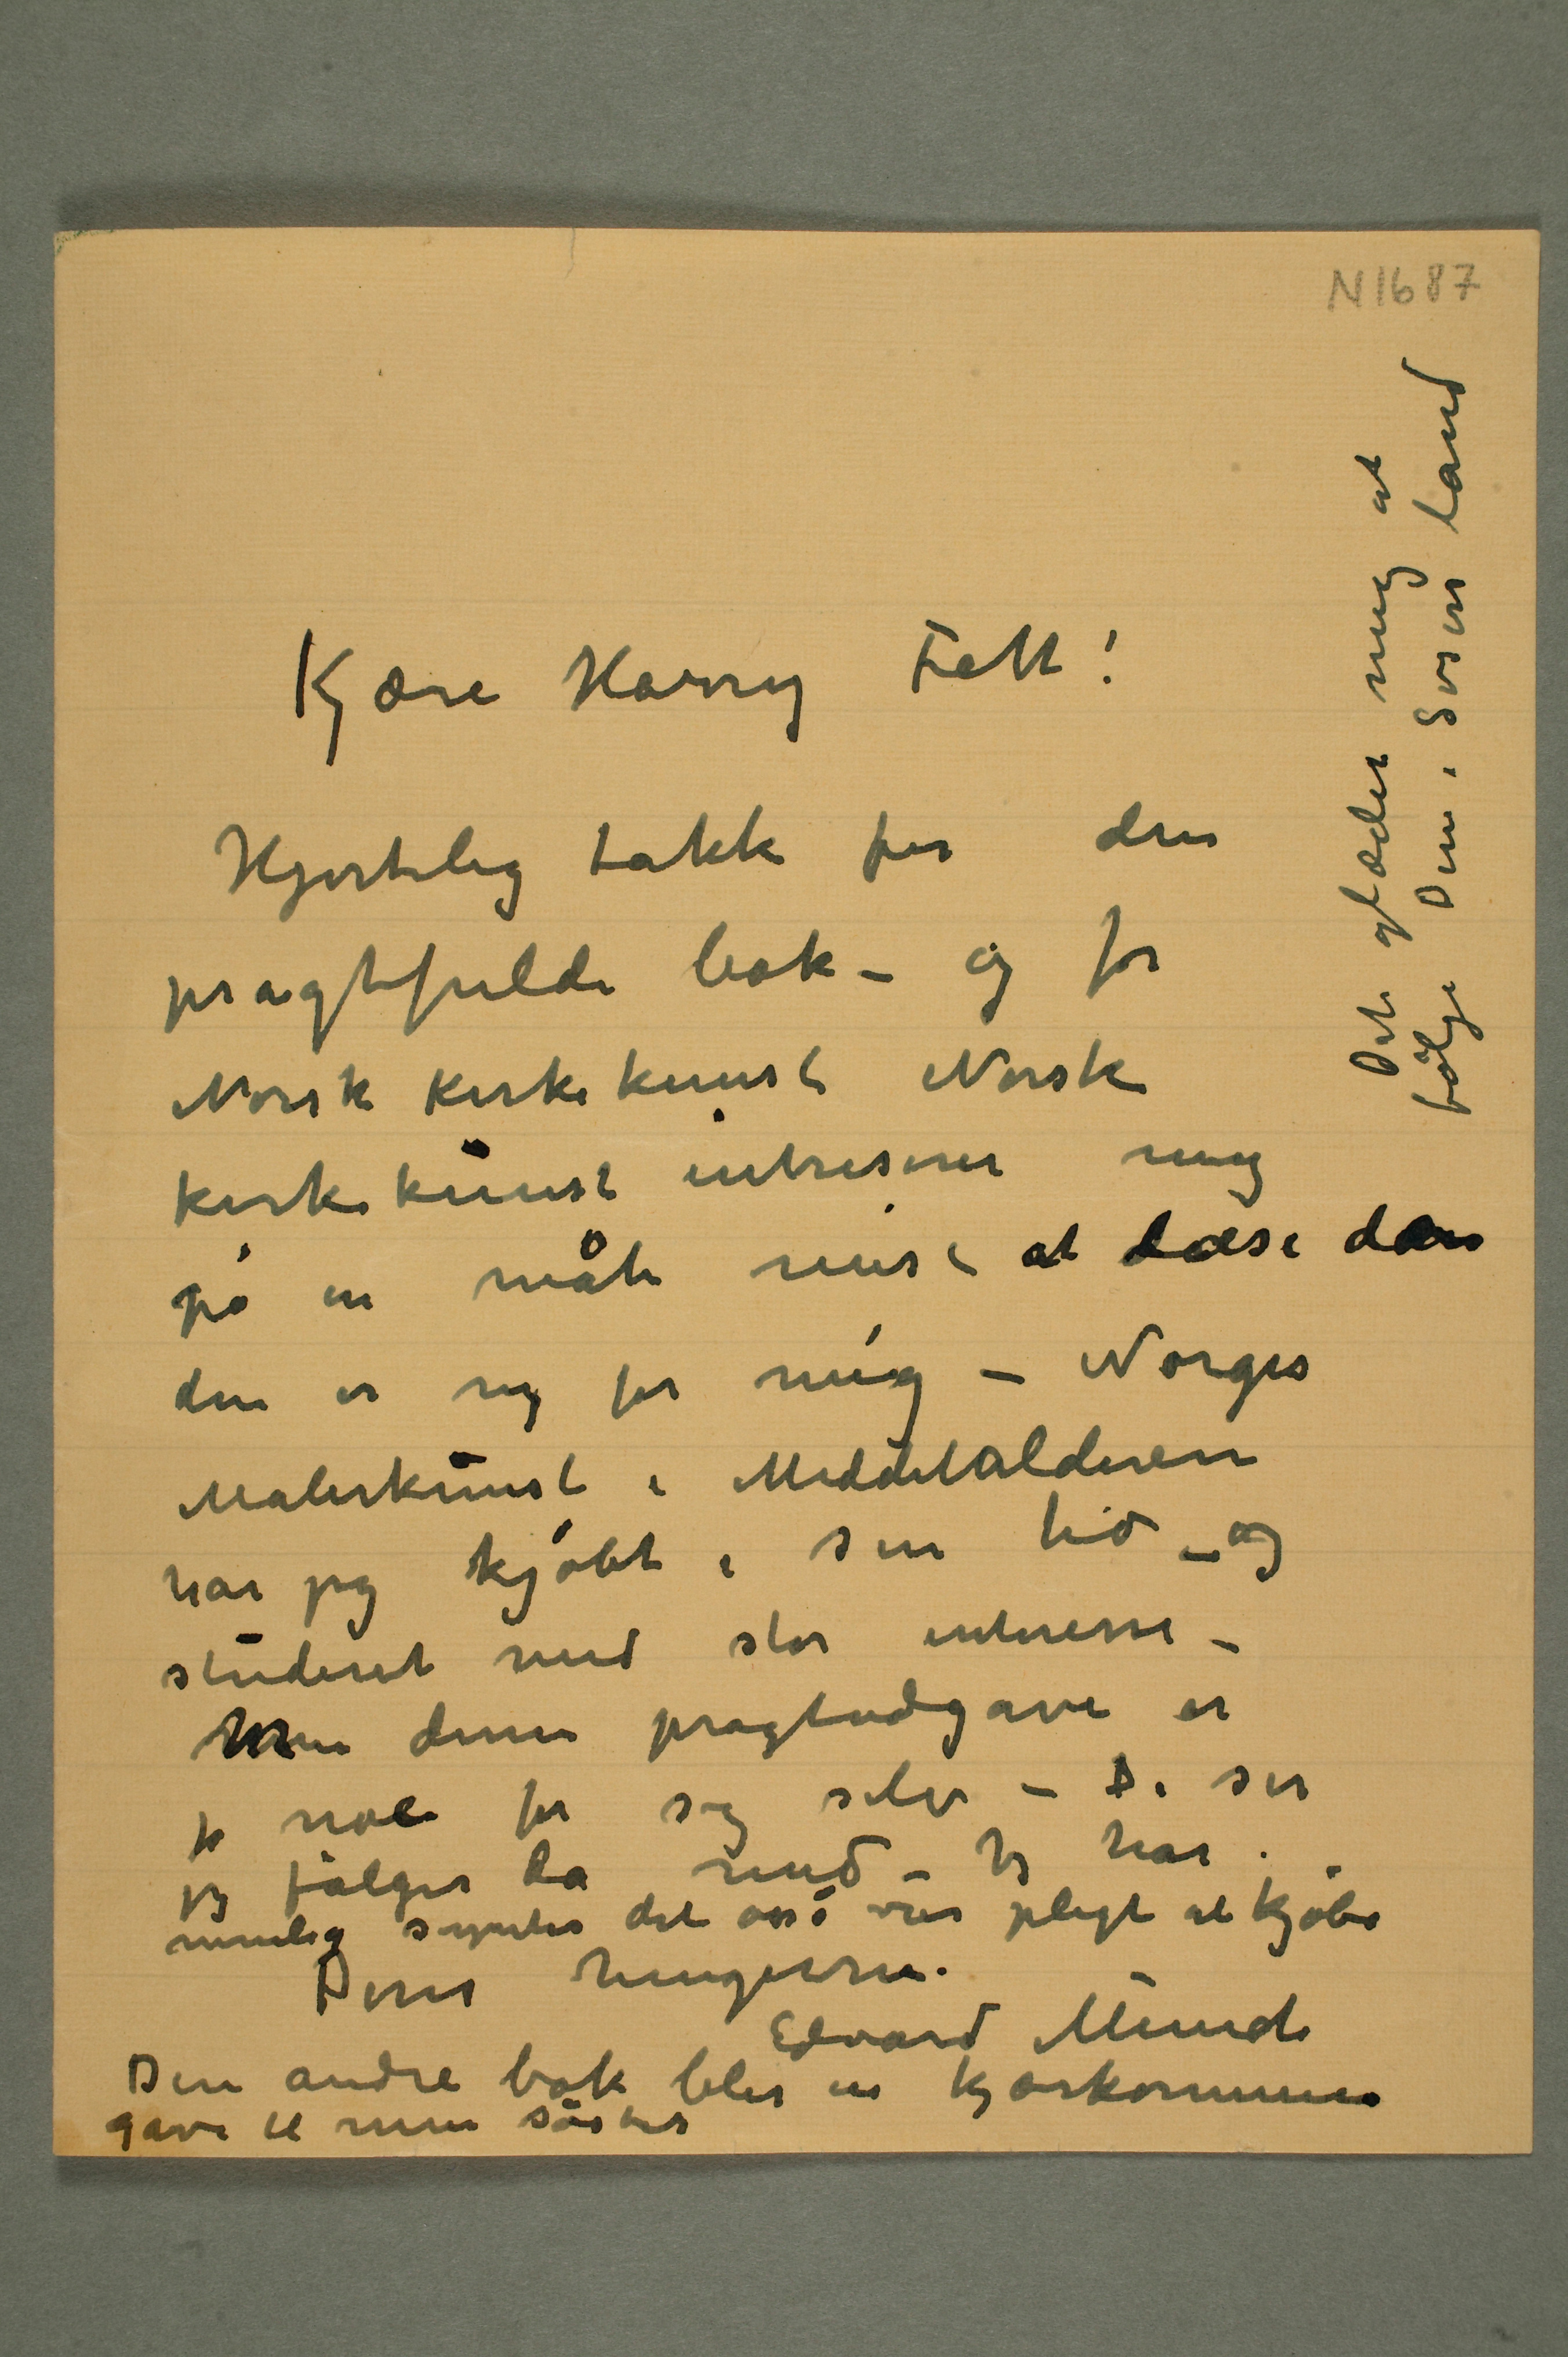 N 1687
Kjære Harry Fett!
Hjertelig takk for den
pragtfulde bok – og for
Norsk Kirkekunst Norsk
kirkekunst intreserer mig
på en måte mest at læse den
den er ny for mig – Norges
Malerkunst i Middelalderen
har jeg kjøbt i sin tid – og
studeret med stor interesse –
Men denne pragtudgave er
jo noe for sig selv – De ser
jeg følger da med – Jeg har
nemlig syntes det også var pligt at kjøbe
Deres hengivne
Edvard Munch
Den andre bok blir en kjærkommen
gave til min søster
Det glæder mig at
følge Dem i Sverres land